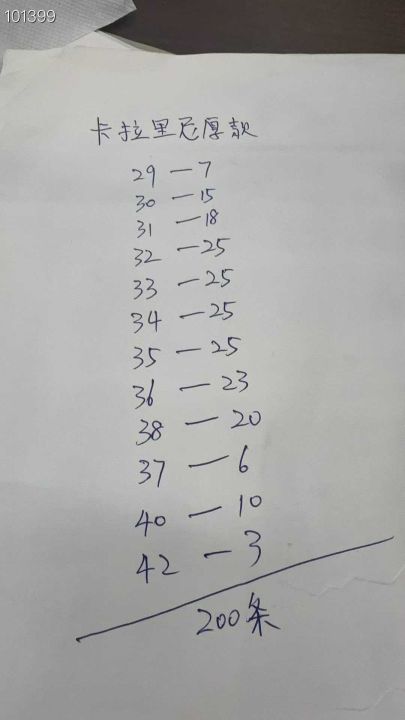 101399
卡拉里尼厚款
29 — 7
30 — 15
31 — 18
32 — 25
33 — 25
34 — 25
35 — 25
36 — 23
38 — 20
37 — 6
40 — 10
42 — 3
200条